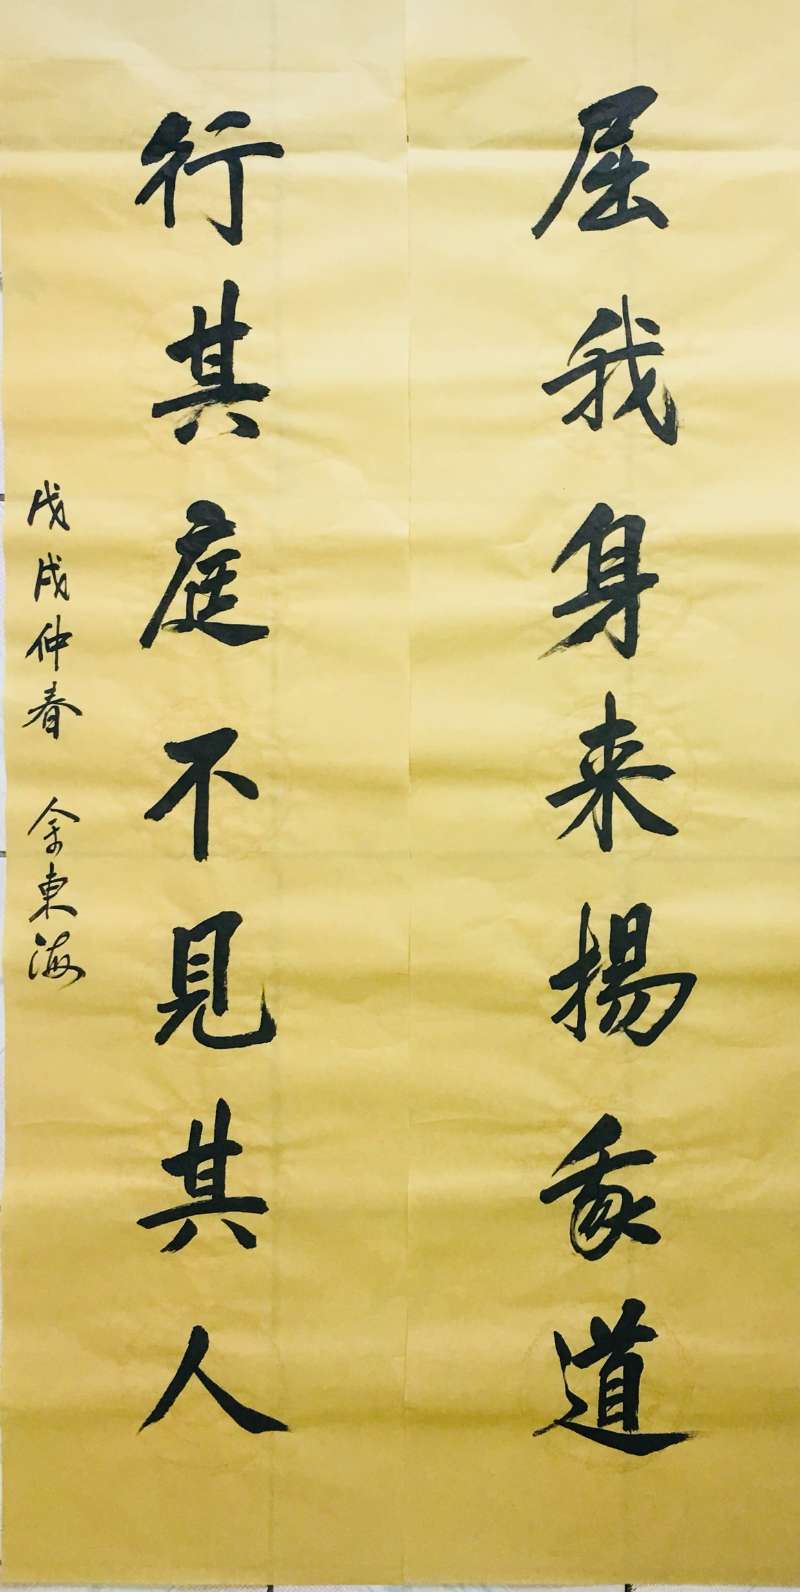 屈我身来揚道
行其庭不見其人
戊戌仲春 余東海